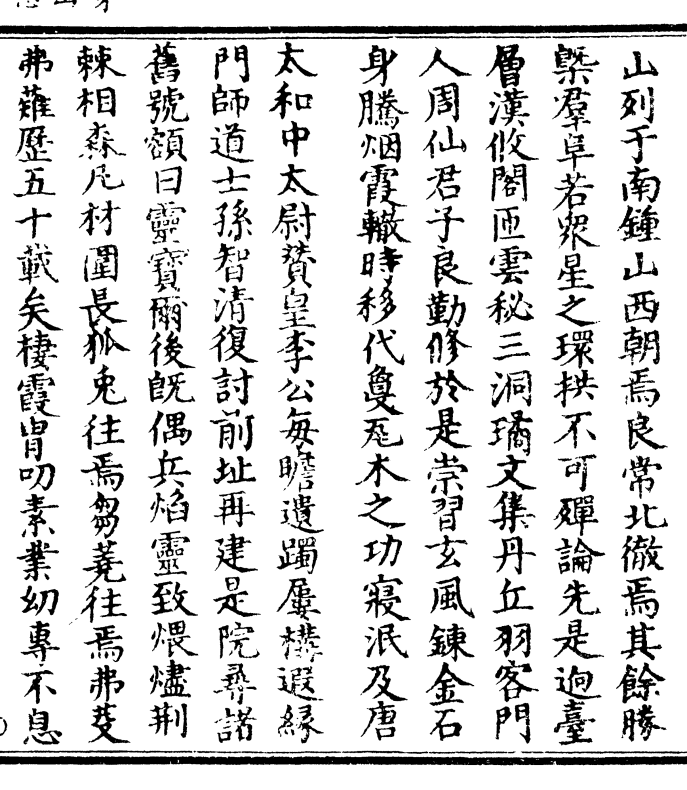 山列于南鍾山西朝焉良常北徹焉其餘勝
槩羣阜若衆星之環拱不可殫論先是迥臺
層漢倐閣匝雲秘三洞璚文集丹丘羽客門
人周仙君子良勤修於是崇習玄風鍊金石
身騰烟霞轍時移代夐土木之功寢泯及唐
太和中太尉贊皇李公每瞻遺躅屢構遐緣
門師道士孫智清復討前址再建是院尋諸
舊號額曰靈寶爾後旣偶兵焰靈致煨燼荆
棘相森凡材圍長狐兎往焉芻蕘往焉弗芟
弗薙歷五十載矣棲霞胄叨素業幼專不息